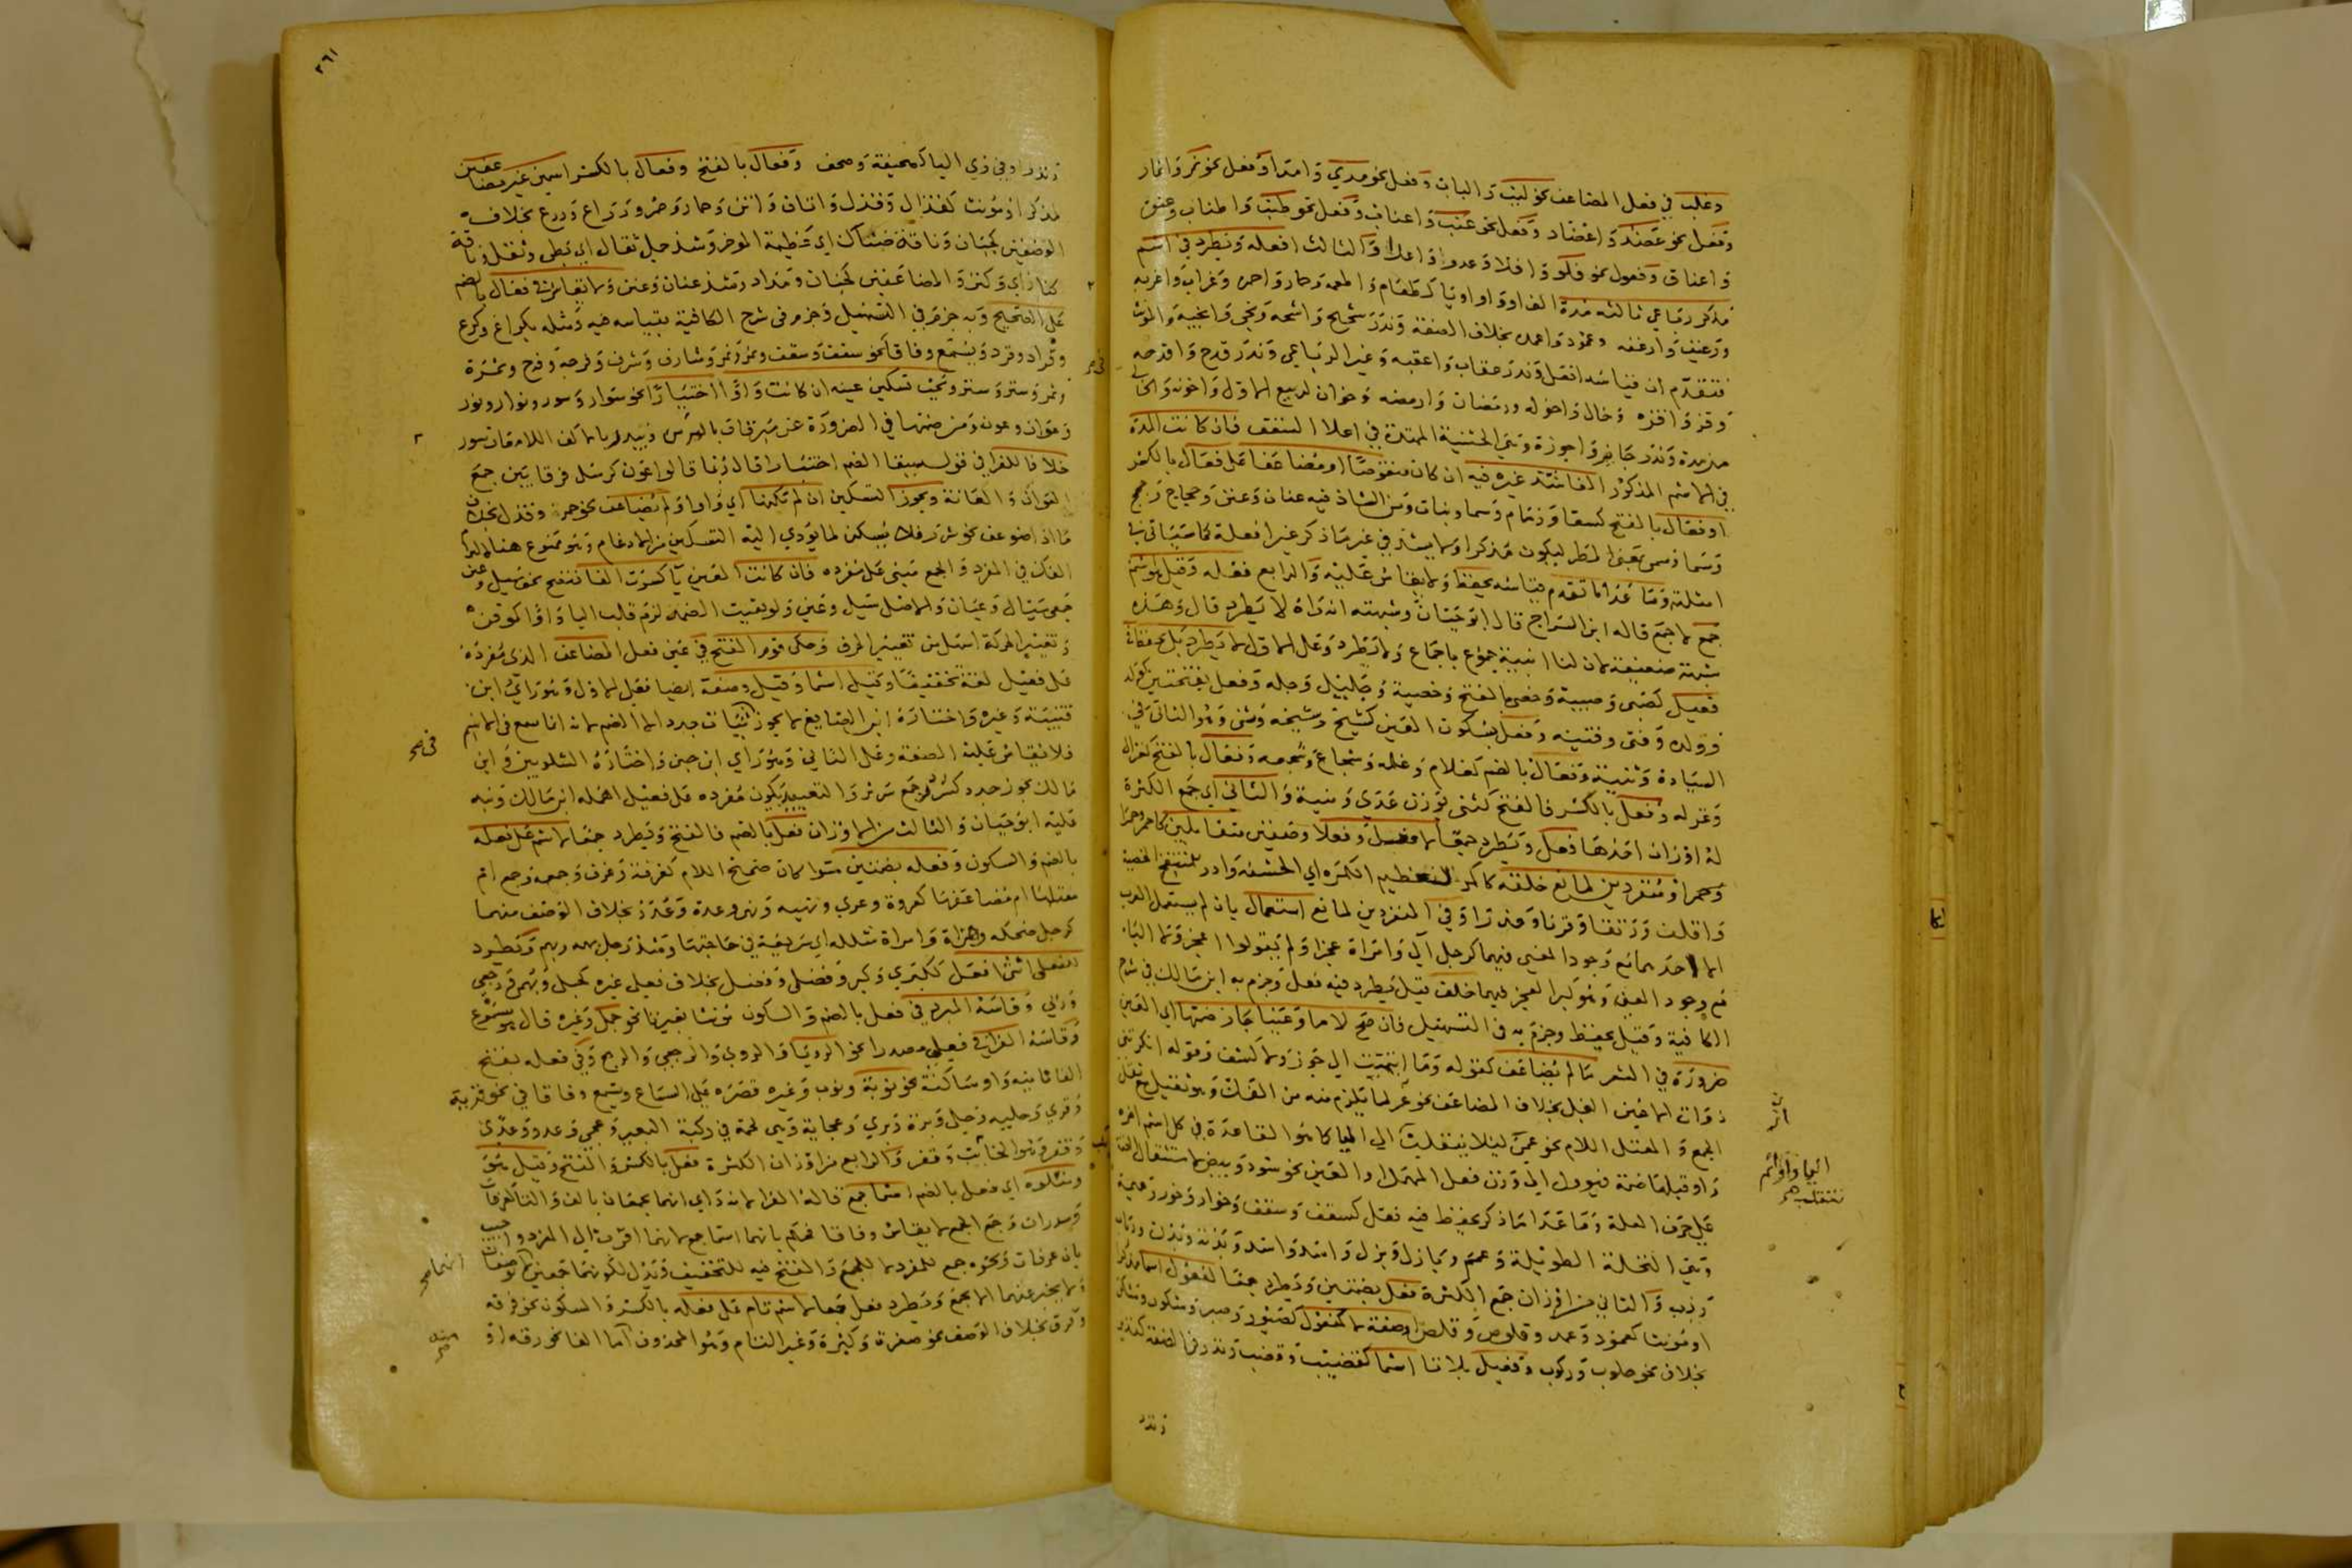 وغلب في فعل المضاعف نحو لبب والباب وفعل نحو مدي وامدا وفعل نحو نمر وانمار
وفعل نحو عضد واعضاد وفعل نحو عنب واعناب وفعل نحو طنب واطناب وعنق
واعناق وفعول نحو فلو وافلا وعدو واعدا والثالث افعله ويطرد في اسم
مذكر رباعي ثالثه مدة الفا او واوا او يا كطعام واطعمه وحمار واحمره وغراب واغربه
ورغيف وارغفه وعمود واعمده بخلاف الصفة وندر شحيح واشحه ونجي وانجية والمونث
فتقدم ان قياسه افعل وندر عقاب واعقبه وغير الرباعي وندر قدح واقدحه
وقن واقنه وخال واخوله ورمضان وارمضه وخوان لربيع الاول واخونه والخالي
من مدة وندر جايز واجوزة وهي الخشبة الممتدة في اعلا السقف فان كانت المدة
في الاسم المذكور الفا شذ غيره فيه ان كان منقوصا او مضاعفا على فعال بالكسر
او فعال بالفتح كسقا وزمام وسما وبتات ومن الشاذ فيه عنان وعنن وحجاج وحجج
وسما وسمي بمعنى المطر ليكون مذكرا ولا يشذ في غير ما ذكر غير افعلة كما سياتي في
امثلته وما عدا ما تقدم قياسه يحفظ ولا يقاس عليه والرابع فعله وقيل هو اسم
جمع لا جمع قاله ابن السراج قال ابو حيان وشبهته انه راه لا يطرد قال وهذه
شبهة ضعيفة لان لنا ابنية جموع باجماع ولا تطرد وعلى الاول لا يطرد بل يحفظ في
فعيل كصبي وصبية وخصي بالفتح وخصية وجليل وجله وفعل بفتحتين كولد
وولده وفتى وفتيه وفعل بسكون العين كشيخ وشيخه وثنى وهو الثاني في
السيادة وثنية وفعال بالضم كغلام وغلمه وشجاع وشجعه وفعال بالفتح كغزال
وغزله وفعل بالكسر فالفتح كثنى بوزن عدى وثنية والثاني اي جمع الكثرة
له اوزان احدها فعل ويطرد جمعا لافعل وفعلا وصفين متقابلين كاحمر وحمرا
وحمر او منفردين لمانع خلقه كاكمر لعظيم الكمره اي الحشفه وادر لمنتفخ الخصية
واقلف ورتقا وقرنا وعذرا وفي المنفردين لمانع استعمال بان لم يستعمل العرب
الا احدهما مع وجود المعنى فيهما كرجل الي وامراة عجزا ولم يقولوا اعجز ولا اليا
مع وجود العين وهو كبر العجز فيهما خلف قيل يطرد فيه فعل وجزم به ابن مالك في شرح
الكافية وقيل يحفظ وجزم به في التسهيل فان صح لاما وعينا جاز ضمها اي العين
ضرورة في الشعر ما لم يضاعف كقوله وما انتميت الى خور ولا كشف وقوله انكرتني
ذوات الاعين النجل بخلاف المضاعف نحو غر لما يلزم منه من الفك وهو ثقيل مع ثقل
الجمع والمعتل اللام نحو عمي ليلا ينقلب الى اليا كما هو القاعدة في كل اسم اخره
واو قبلها ضمة فيوول الى وزن فعل المهمل او العين نحو سود وبيض لاستثقال الضمة
على حرف العلة وما عدا ما ذكر يحفظ فيه فعل كسقف وسقف وخوار وخور وعميمة
وهي النخلة الطويلة وعم وبازل وبزل واسد واسد وبدنة وبدن وذباب
وذب والثاني من اوزان جمع الكثرة فعل بضمتين ويطرد جمعا لفعول اسما مذكرا
او مونثا كعمود وعمد وقلوص وقلص او صفة لا كمفعول كصبور وصبر وشكور وشكر
بخلاف نحو حلوب وركوب وفعيل بلا تا اسما كقضيب وقضب وندر في الصفة كنذير
وندر
اليا واوا ثم
تنقلب صح
٢٦١
وندر او في ذي اليا كصحيفة وصحف وفعال بالفتح وفعال بالكسر اسمين غير مضاعفين
لمذكر او مونث كقذال وقذل واتان واتن وحمار وحمر وذراع وذرع بخلاف
الوصفين كجبان وناقة ضناك اي عظيمة الموخر وشذ جمل ثقال اي بطي وثقل وناقة
كناز اي وكنز والمضاعفين كجنان ومداد وشذ عنان وعنن ولا يقاس في فعال بالضم
على الصحيح وبه جزم في التسهيل وجزم في شرح الكافية بقياسه فيه ومثله بكراع وكرع
وقراد وقرد ويسمع وفاقا نحو سقف وسقف ونمر ونمر وشارف وشرف وفرحه وفرح وثمرة
وثمر وستر وستر ويجب تسكين عينه ان كانت واوا اختيارا نحو سوار وسور ونوار ونور
وعوان وعون ومن ضمها في الضرورة عن مبرقات بالبرين وتبدو بالاكف اللامعات سور
خلافا للفرا في قوله بضم اختيارا قال ربما قالوا عون كرسل فرقا بين جمع
العوان والعانة ويجوز التسكين ان لم تكنها اي واوا ولم يضاعف نحو حمر وقذل بخلاف
ما اذا ضوعف نحو سرر فلا يسكن لما يودي اليه التسكين من الادغام وهو ممنوع هنا
الفك في المفرد والجمع مبني على مفرده فان كانت العين يا كسرت الفا فتصح نحو سيل وعين
جمعي سيال وعيان والاصل سيل وعين ولو بقيت الضمه لزم قلب اليا واوا كموقن
وتغيير الحركة اسهل من تغيير الحرف وحكى قوم الفتح في عين فعل المضاعف الذي مفرده
على فعيل لغة تخفيفا وقيل اسما وقيل وصفة ايضا فعلى الاول وهو راي ابن
قتيبة وغيره واختاره ابن الصايغ لا يجوز ثياب جدد الا الضم لانه انما سمع في الاسم
فلا يقاس عليه الصفة وعلى الثاني وهو راي ابن جني واختاره الشلوبين وابن
مالك يجوز جدد كسرر جمع سرير والتعبير بكون مفرده على فعيل اهمله ابن مالك ونبه
عليه ابو حيان والثالث من الاوزان فعل بالضم فالفتح ويطرد جمعا لاسم على فعله
بالضم والسكون وفعله بضمتين سوا كان صحيح اللام كغرفة وغرف وجمعه وجمع ام
معتلها ام مضاعفها كعروة وعرى ونهيه ونهى وعدة وعدد بخلاف الوصف منهما
كرجل ضحكه وهزاة وامراة شلله اي سريعة في حاجتها وشذ رجل بهمه وبهم ويطرد
لفعلى انثى افعل ككبرى وكبر وفضلى وفضل بخلاف فعلى غيره كحبلى وبهمى ورجعى
وربى وقاسه المبرد في فعل بالضم والسكون مونثا بغير تا نحو جمل وغيره قال يسمع
وقاسه الفرا في فعلى مصدرا نحو الرويا والروى والرجعى والرجع وفي فعله بفتح
الفا ثانيه واو ساكنة نحو نوبة ونوب وغيره قصره على السماع ويسمع وفاقا في نحو قرية
وقرى وحلية وحلى وبرة وبرى وعجاية وهي لحمة في ركبة البعير وعجى وعدو وعدى
وقفر وهو الخايب وقفر والرابع من اوزان الكثرة فعل بالكسر والفتح وقيل هو
وتلوه اي فعل بالضم اسما جمع قاله الفرا لانه راى انهما يجمعان بالف والتا كغرفات
وسدرات وجمع الجمع لا يقاس وفاقا فحكم بانهما اسما جمع لانهما اقرب الى المفرد واجيب
بان غرفات ونحوه جمع للمفرد لا للجمع والفتح فيه للتخفيف وتدل لكونهما جمعين
ولا يخبر عنهما الا بجمع ويطرد فعل جمعا لاسم تام على فعله بالكسر والسكون نحو فرقه
وفرق بخلاف الوصف نحو صغرة وكبرة وغير التام وهو المحذوف اما الفا نحو رقه او
انهما صح